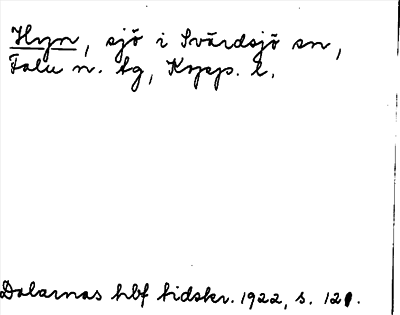 Hyn, sjö i Svärdsjö sn,
Falu n. tg, Kopp. l.
Dalarnas hbf tidskr. 1922, s. 121.